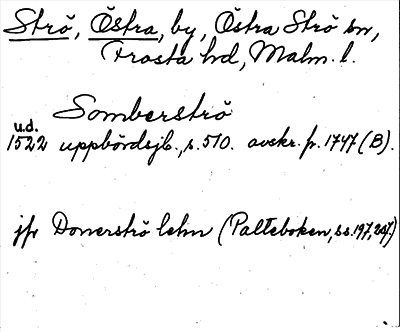 Strö, Östra, by, Östra Strö sn,
Frosta hd, Malm. l.
Somberströ
u.d.
1522 uppbördsjb., s. 510. avskr. fr. 1747 (B).
jfr Domerströ lehn (Palteboken, ss. 197, 247.)